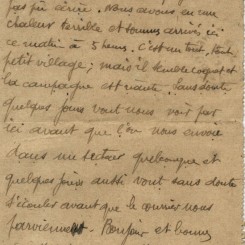 pas pu écrire. Nous avons eu une
chaleur terrible et sommes arrivés ici
ce matin à 5 heures. C'est un tout, tout
petit village; mais il semble coquet et
la campagne est Sans doute
quelques jours vont nous voir par
ici avant que l'on nous envoie
dans un secteur quelconque et
quelques jours aussi vont sans doute
s'écouler avant que le courrier nous
parvienne. Bonjour et bonne